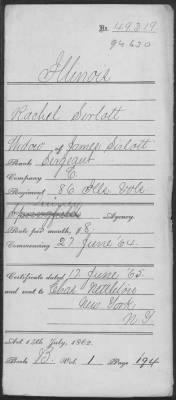 No. 49319
94620
Illinois
Rachel Sirlott
Widow of James Sirlott
Rank Sergeant
Company C.
Regiment 86 Ills Vols
Springfield Agency.
Rate per month, $8.
Commencing 27 June 64.
Certificate dated 17 June 65.
and sent to Chas Nettleton
New York
N.Y
Act 14th July, 1862.
Book B. Vol. 1 Page 194